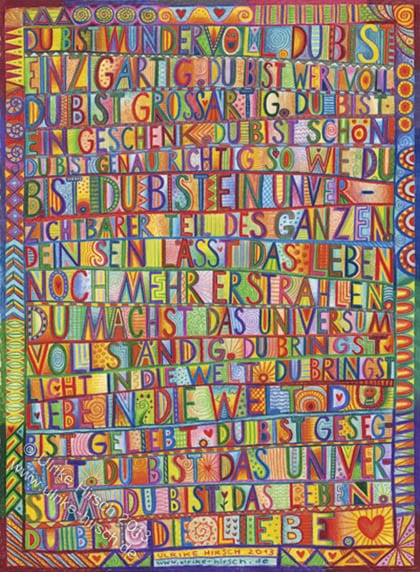 DU BIST WUNDERVOLL. DU BIST
EINZIGARTIG. DU BIST WERTVOLL.
DU BIST GROSSARTIG. DU BIST
EIN GESCHENK. DU BIST SCHÖN.
DU BIST GENAU RICHTIG SO WIE DU
BIST. DU BIST EIN UNVER-
ZICHTBARER TEIL DES GANZEN.
DEIN SEIN LÄSST DAS LEBEN
NOCH MEHR ERSTRAHLEN.
DU MACHST DAS UNIVERSUM
VOLLSTÄNDIG. DU BRINGST
LICHT IN DIE WELT. DU BRINGST
LIEBE IN DIE WELT. DU
BIST GELIEBT. DU BIST GESEG-
NET. DU BIST DAS UNIVER-
SUM. DU BIST DAS LEBEN.
DU BIST DIE LIEBE.
ULRIKE HIRSCH 2013
www.ulrike-hirsch.de
© Ulrike Hirsch 2013
www.ulrike-hirsch.de